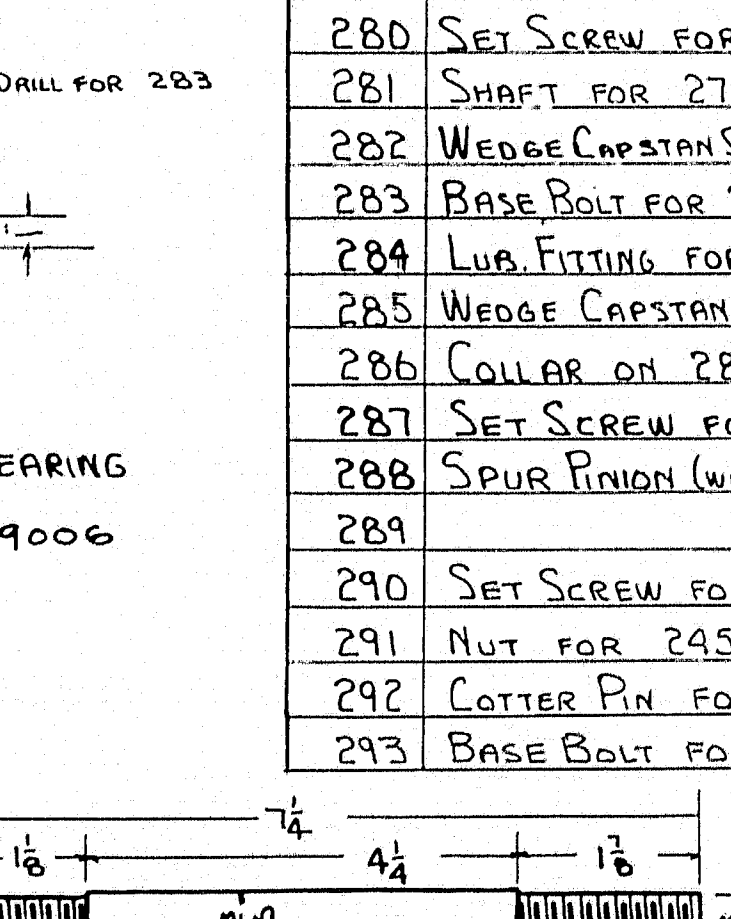 280 SET SCREW FOR
DRILL FOR 283
281 SHAFT FOR 27
282 WEDGE CAPSTAN S
283 BASE BOLT FOR
284 LUB. FITTING FOR
285 WEDGE CAPSTAN
286 COLLAR ON 28
287 SET SCREW FO
EARING
288 SPUR PINION (W
9006
289
290 SET SCREW FO
291 NUT FOR 245
292 COTTER PIN FO
293 BASE BOLT FO
7 1/4
1 1/8 4 1/4 1 7/8